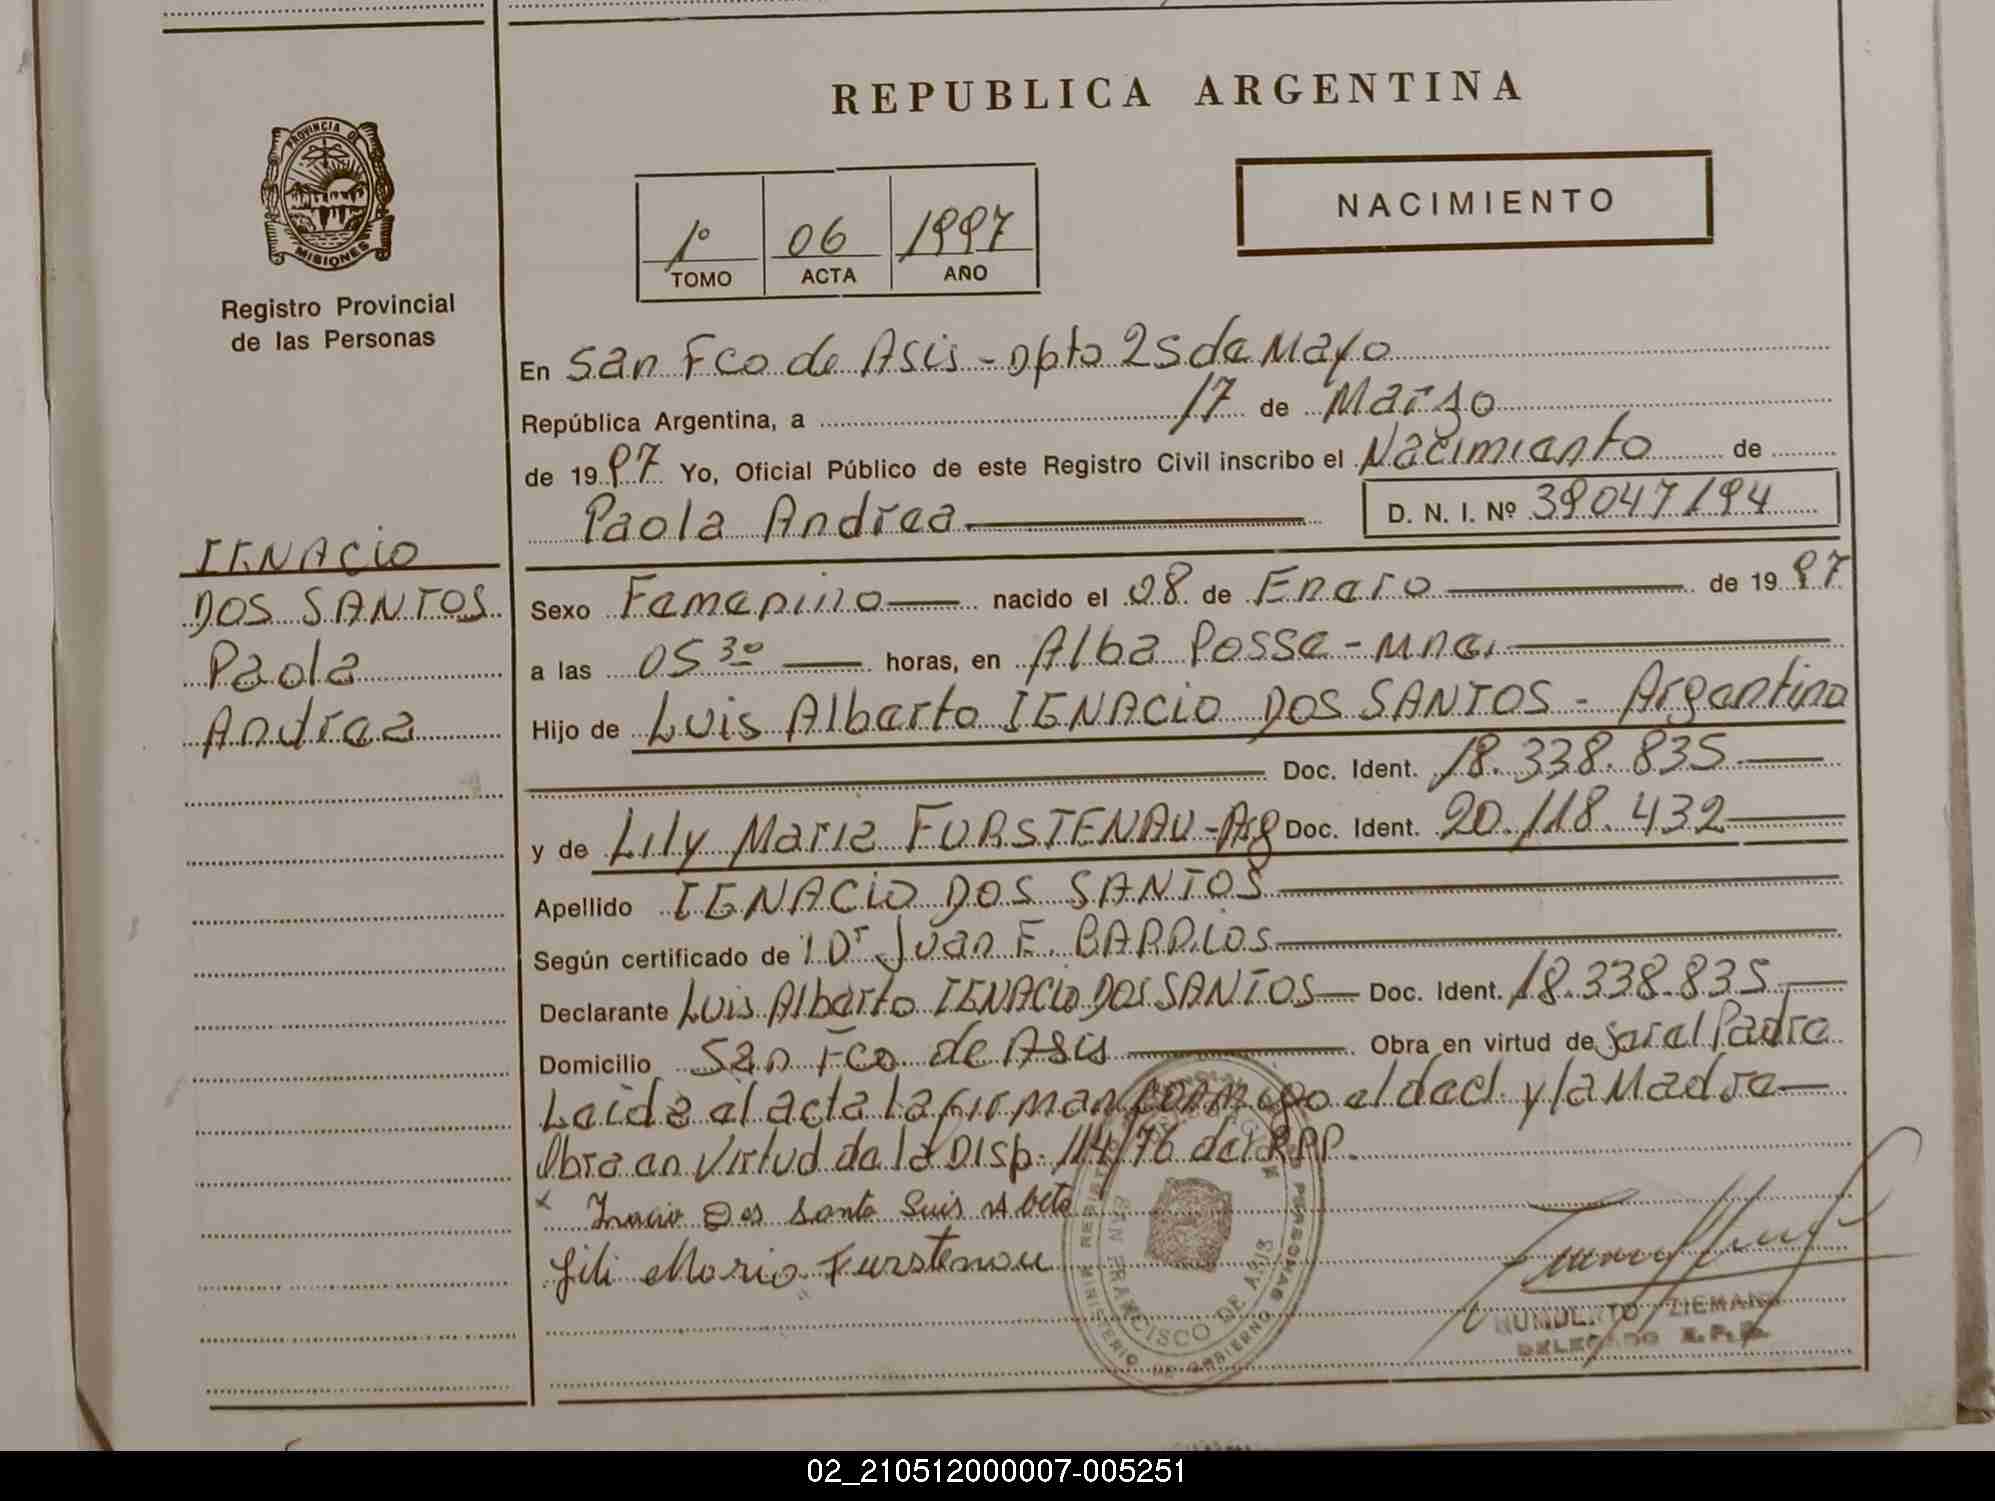 REPUBLICA ARGENTINA
PROVINCIA DE
MISIONES
Registro Provincial
de las Personas
NACIMIENTO
1º 06 1997
TOMO ACTA AÑO
En San Fco de Asis - Dpto 25 de Mayo
República Argentina, a 17 de Marzo
de 1997 Yo, Oficial Público de este Registro Civil inscribo el Nacimiento de
Paola Andrea D. N. I. Nº 39047194
IGNACIO
DOS SANTOS
Paola
Andrea
Sexo Femenino nacido el 08 de Enero de 1997
a las 05 30 horas, en Alba Posse - Mnes.
Hijo de Luis Alberto IGNACIO DOS SANTOS - Argentino
Doc. Ident. 18.338.835
y de Lily Maria FURSTENAU - Arg Doc. Ident. 20.118.432
Apellido IGNACIO DOS SANTOS
Según certificado de l Dr Juan E. BARRIOS
Declarante Luis Alberto IGNACIO DOS SANTOS Doc. Ident. 18.338.835
Domicilio San Fco de Asis Obra en virtud de ser el Padre
Leida el acta la firman conmigo el decl. y la Madre
Obra en virtud de la Disp. 114/76 del RPP.
x Inacio Dos Santo Luis Albeto
Lili Maria Furstenau
SAN FRANCISCO DE ASIS
MINISTERIO DE GOBIERNO
HUMBERTO ZIEMANN
DELEGADO R.P.P.
02_210512000007-005251